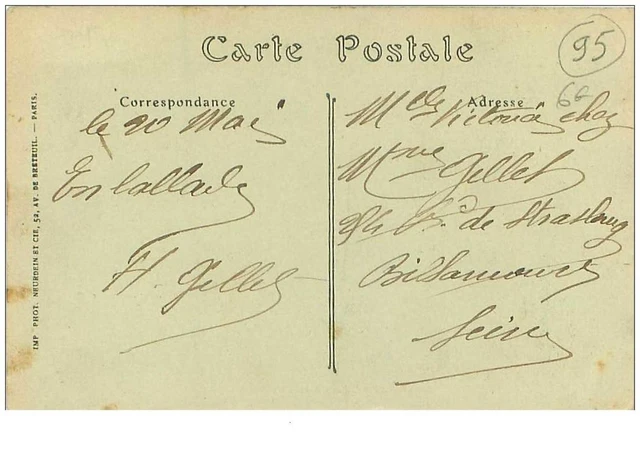 Carte Postale
95
Correspondance
Adresse
66
le 20 Mai
En ballade
H. Gellet
Melle Victoria chez
Mme Gellet
Bd de Strasbourg
Seine
IMP. PHOT. NEURDEIN ET CIE, 52, AV. DE BRETEUIL. — PARIS.